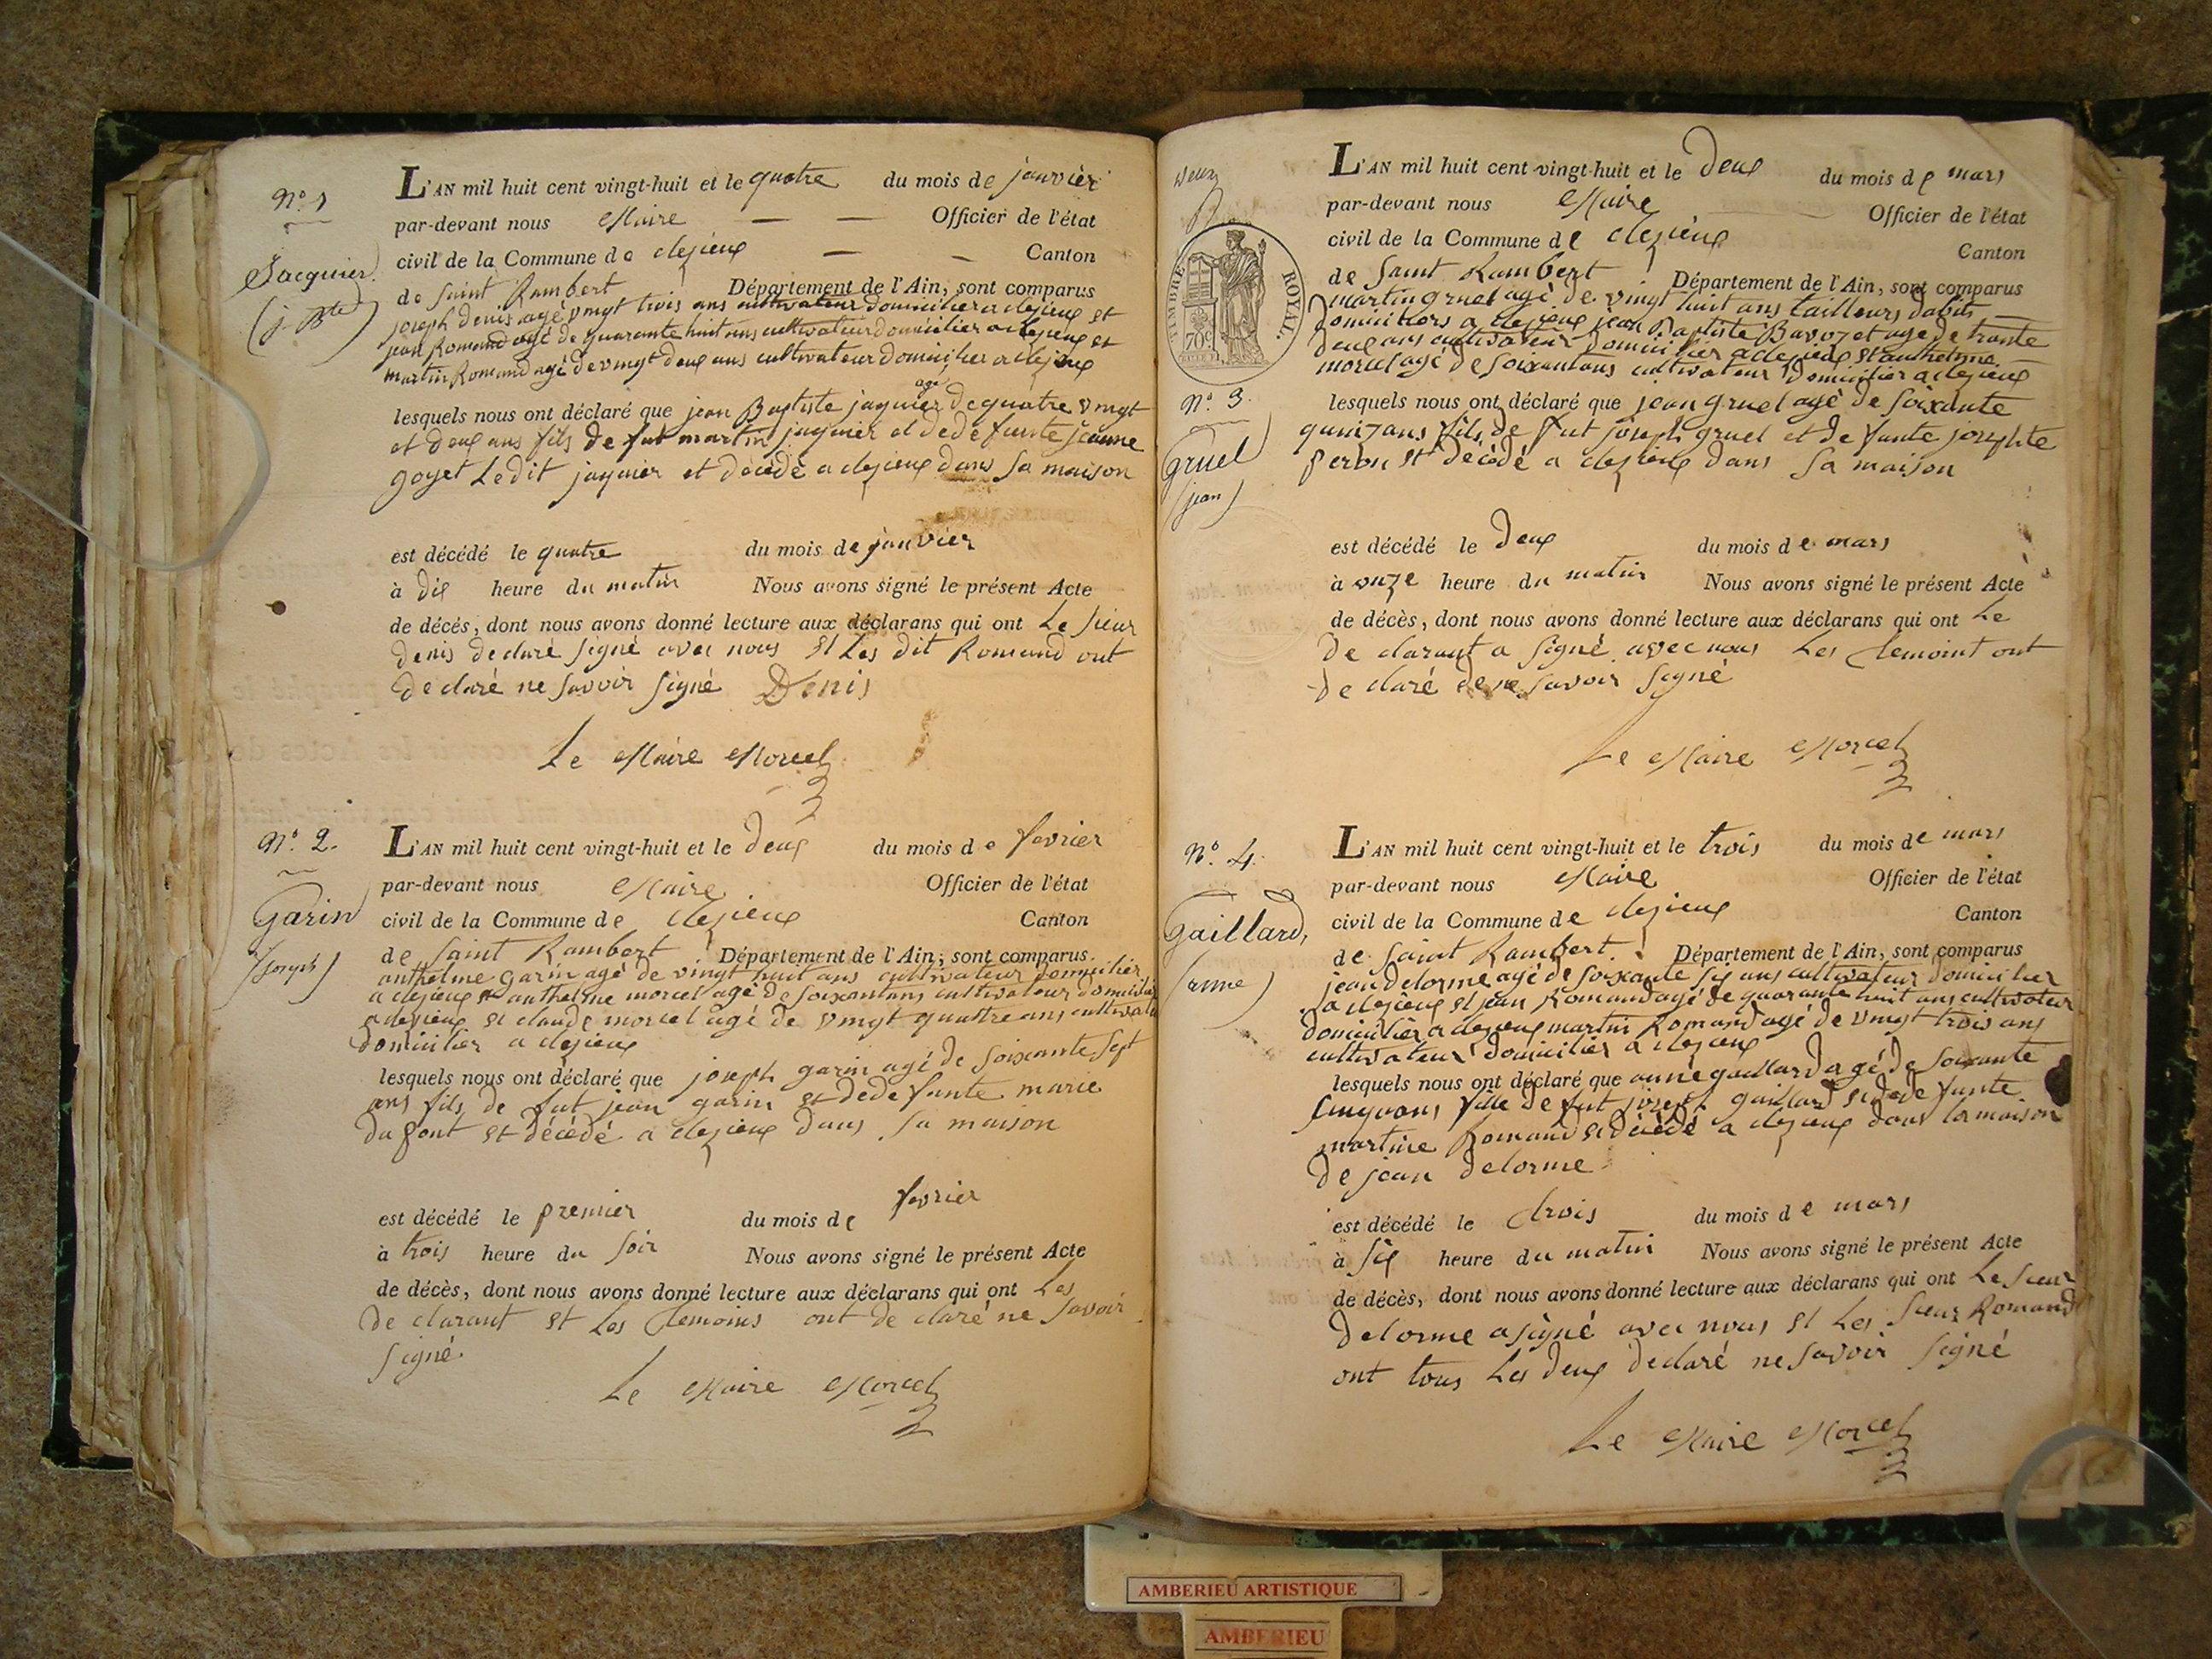 N.° 1
Jacquier
(j. Bte)
L'AN mil huit cent vingt-huit et le quatre du mois de janvier
par-devant nous Maire — — Officier de l'état
civil de la Commune de clezieux — — Canton
de Saint Rambert Département de l'Ain, sont comparus
joseph denis agé vingt trois ans cultivateur domicilier a clezieux et
jean Romand agé de quarante huit ans cultivateur domicilier a clezieux et
martin Romand agé de vingt deux ans cultivateur domicilier a clezieux
lesquels nous ont déclaré que jean Baptiste jaquier agé de quatre vingt
et deux ans fils de fut martin jaquier et de defunte jeanne
goyet Ledit jaquier et décédé a clezieux dans Sa maison
est décédé le quatre du mois de janvier
à dix heure du matin Nous avons signé le présent Acte
de décés, dont nous avons donné lecture aux déclarans qui ont Le Sieur
denis declaré signé avec nous et Les dit Romand ont
declaré ne savoir signé Denis
Le Maire Morcel
N.° 2.
Garin
(joseph)
L'AN mil huit cent vingt-huit et le deux du mois de fevrier
par-devant nous Maire Officier de l'état
civil de la Commune de clezieux Canton
de Saint Rambert Département de l'Ain, sont comparus.
anthelme garin agé de vingt huit ans cultivateur domicilier
a clezieux et anthelme morcel agé de soixantans cultivateur domicilier
a clezieux et claude morcel agé de vingt quattre ans cultivate
domicilier a clezieux
lesquels nous ont déclaré que joseph garin agé de soixante sept
ans fils de fut jean garin et de defunte marie
dufont et décédé a clezieux dans sa maison
est décédé le premier du mois de fevrier
à trois heure du soir Nous avons signé le présent Acte
de décès, dont nous avons donné lecture aux déclarans qui ont Les
declarant et Les temoins ont declaré ne savoir
signé.
Le Maire Morcel
TIMBRE ROYAL.
70c
N.° 3.
gruel
(jean)
L'AN mil huit cent vingt-huit et le deux du mois de mars
par-devant nous Maire — Officier de l'état
civil de la Commune de clezieux Canton
de Saint Rambert Département de l'Ain, sont comparus
martin gruel agé de vingt huit ans tailleurs dabits —
domiciliers a clezieux jean Baptiste Bavozet age de trante
deux ans cultivateur domicilier a clezieux et anthelme
morcel agé de soixantans cultivateur domicilier a clezieux
lesquels nous ont déclaré que jean gruel agé de soixante
quinz ans fils de fut joseph gruel et defunte josephte
et décédé a clezieux dans sa maison
est décédé le deux du mois de mars
à onze heure du matin Nous avons signé le présent Acte
de décès, dont nous avons donné lecture aux déclarans qui ont Le
declarant a signé avec nous Les temoint ont
declaré de ne savoir signé
Le Maire Morcel
N.° 4.
gaillard,
(anne)
L'AN mil huit cent vingt-huit et le trois du mois de mars
par-devant nous Maire Officier de l'état
civil de la Commune de clezieux Canton
de Saint Rambert. Département de l'Ain, sont comparus
jean delorme agé de soixante six ans cultivateur domicilier
a clezieux et jean Romand agé de quarante huit ans cultivateur
domicilier a clezieux martin Romand agé de vingt trois ans
cultivateur domicilier a clezieux
lesquels nous ont déclaré que anne gaillard agé de soixante
cinq ans fille de fut joseph gaillard et de defunte
martine Romand et décédé a clezieux dans la maison
de jean delorme
est décédé le trois du mois de mars
à six heure du matin Nous avons signé le présent Acte
de décès, dont nous avons donné lecture aux déclarans qui ont Le Sieur
delorme a signé avec nous et Les Sieur Romand
ont tous Les deux declaré ne savoir signé
Le Maire Morcel
AMBERIEU ARTISTIQUE
AMBERIEU